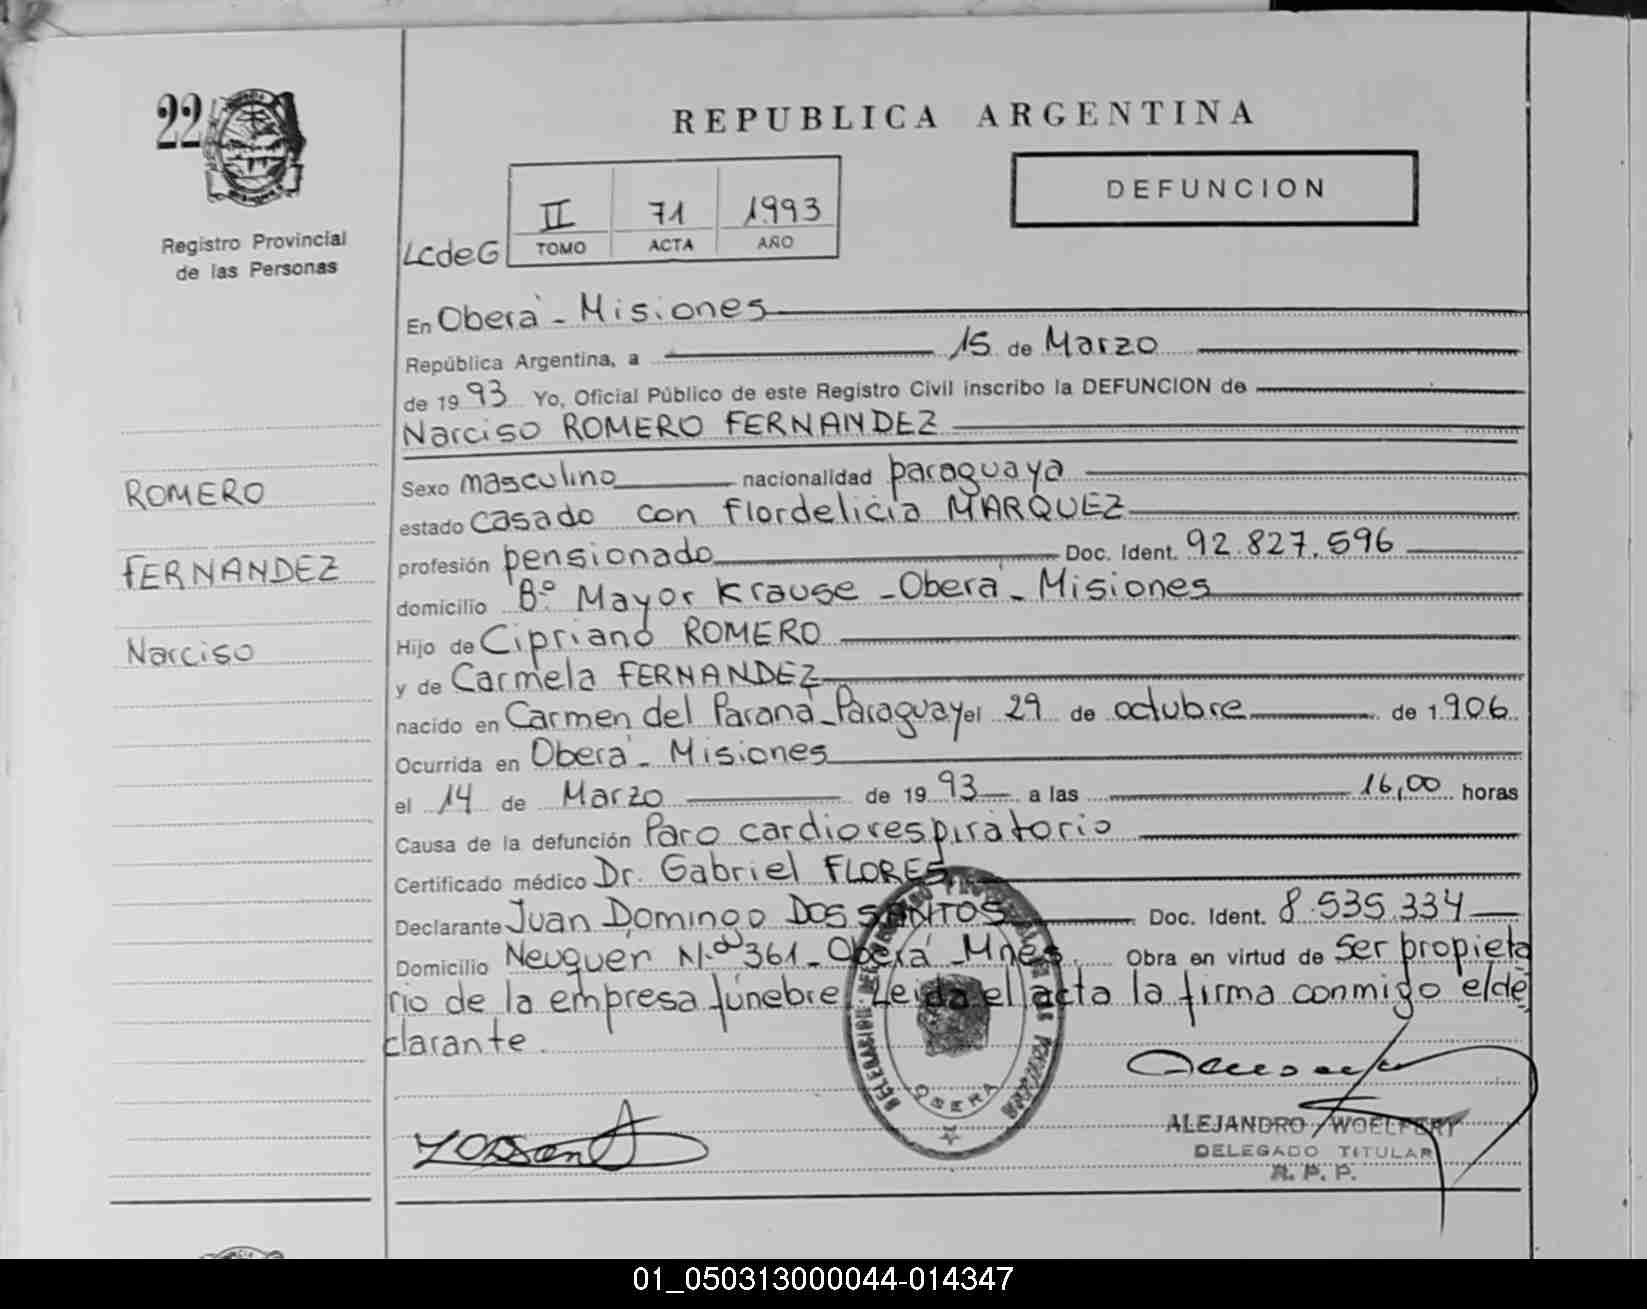 22
REPUBLICA ARGENTINA
DEFUNCION
Registro Provincial
de las Personas
LCdeG
II 71 1993
TOMO ACTA AÑO
En Oberá - Misiones
República Argentina, a 15 de Marzo
de 1993 Yo, Oficial Público de este Registro Civil inscribo la DEFUNCION de
Narciso ROMERO FERNANDEZ
ROMERO
FERNANDEZ
Narciso
Sexo masculino nacionalidad paraguaya
estado casado con Flordelicia MARQUEZ
profesión pensionado Doc. Ident. 92.827.596
domicilio Bº Mayor Krause - Oberá - Misiones
Hijo de Cipriano ROMERO
y de Carmela FERNANDEZ
nacido en Carmen del Paraná - Paraguay el 29 de octubre de 1.906
Ocurrida en Oberá - Misiones
el 14 de Marzo de 1993 a las 16,00 horas
Causa de la defunción Paro cardiorespiratorio
Certificado médico Dr. Gabriel FLORES
Declarante Juan Domingo DOS SANTOS Doc. Ident. 8.535.334
Domicilio Neuquer N.º 361 - Oberá - Mnes. Obra en virtud de Ser propieta
rio de la empresa fúnebre. Leida el acta la firma conmigo el de
clarante.
OBERA
ALEJANDRO WOELFERT
DELEGADO TITULAR
R. P. P.
01_050313000044-014347